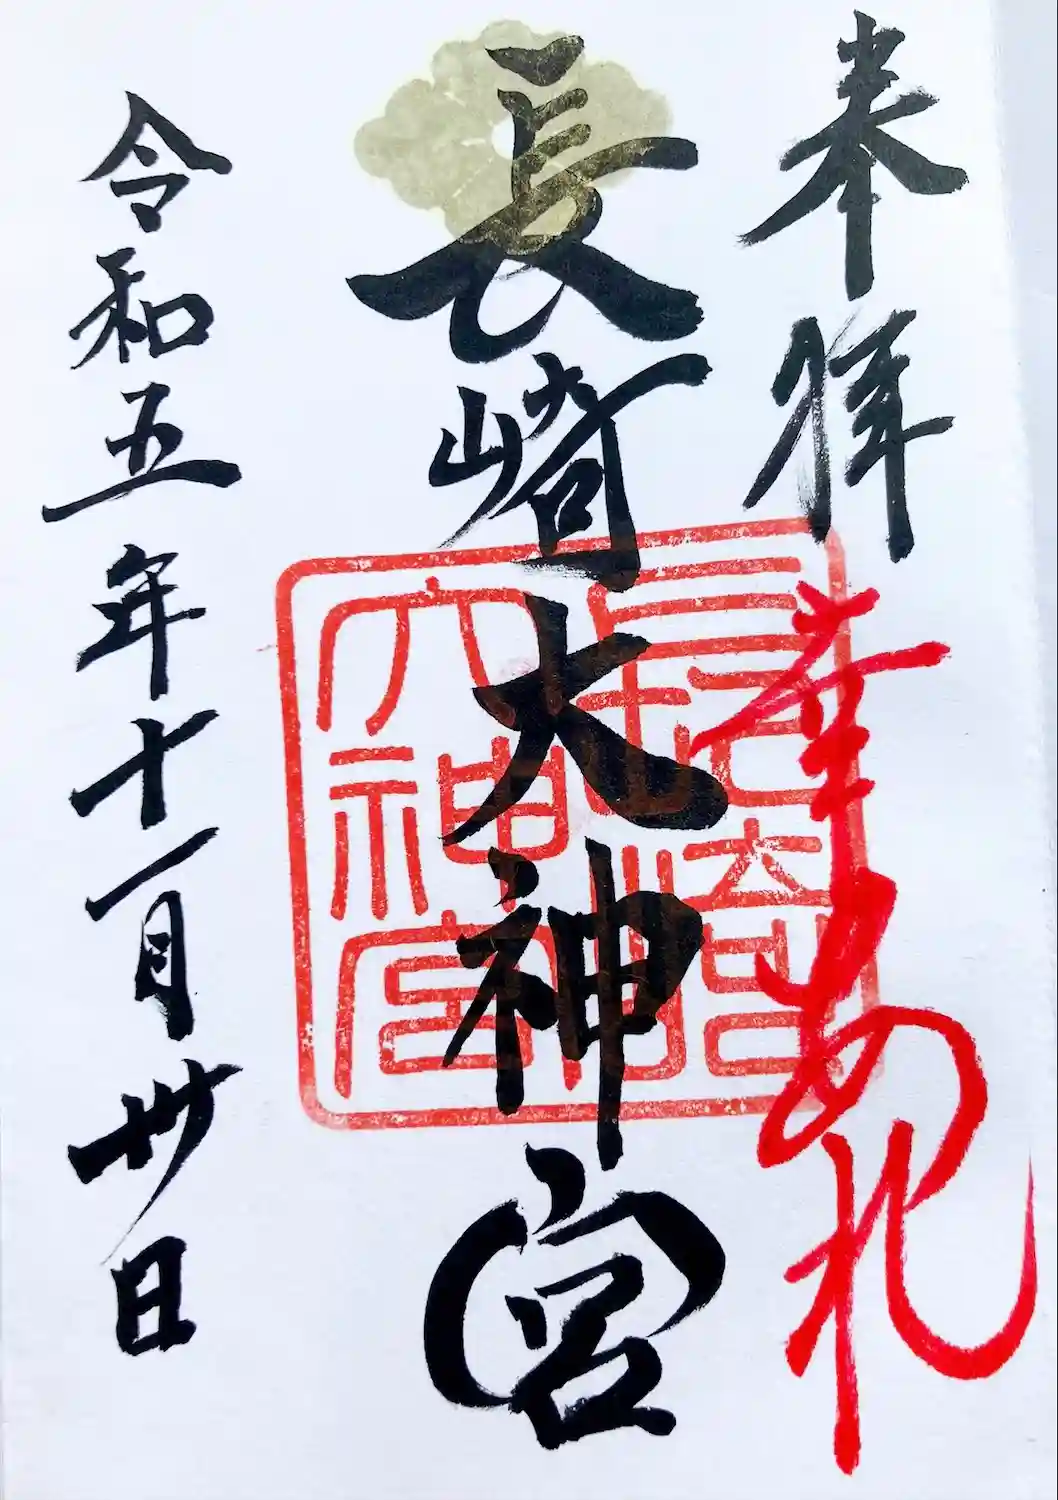 奉拝
幸あれ
長崎大神宮
長崎
大神宮
令和五年十一月卅日